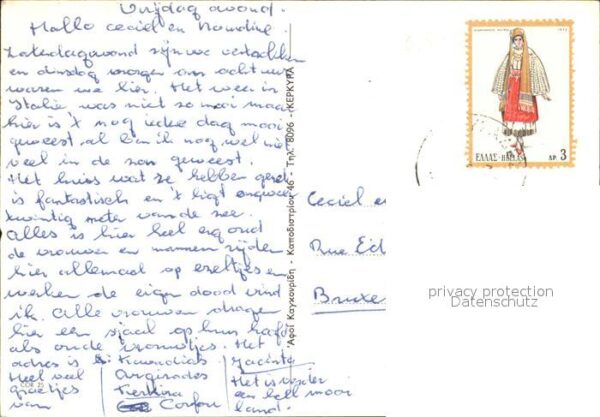 Vrijdag avond.
Hallo Ceciel en Nourdine
Zaterdagavond zijn we vertrokken
en dinsdag morgen om acht uur
waren we hier. Het weer in
Italie was niet so mooi maar
hier is 't nog iedere dag mooi
geweest al ben ik nog wel niet
veel in de zon geweest.
Het huis wat ze hebben
is fantastisch en 't ligt ongeveer
twintig meter van de zee.
Alles is hier heel erg oud
de vrouwen en mannen rijden
hier allemaal op ezeltjes en
werken de eigen dood vind
ik. Alle vrouwen dragen
hier een sjaal op hun hoofd
als oude vrouwtjes. Het
adres is
Heel veel
groetjes
van
Argirades
Kerkira
Corfou
Jacinta
Het is verder
een heel mooi
land.
COR 25
"Αφοί Καγκουρίδη - Καποδιστρίου 46 Τηλ. 8096 - ΚΕΡΚΥΡΑ
ΕΛΛΑΣ-HELLAS ΔΡ. 3
Ceciel en
Rue Ed
Bruxe
privacy protection
Datenschutz